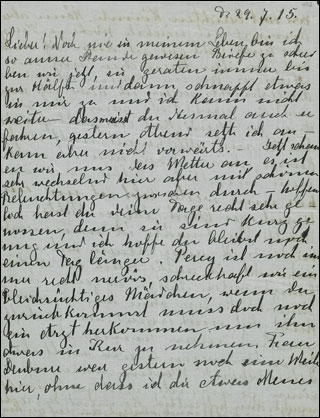 d. 29. 7. 15.
Lieber! Noch nie in meinem Leben bin ich
so arme Freunde gewesen Briefe zu schrei
ben wie jetzt, sie geraten immer bis
zur Hälfte und dann schnappt etwas
in mir zu und ich kann nicht
weiter – das musst du diesmal auch er
fahren, gestern Abend setzte ich an
kam aber nicht vorwärts. Jetzt schauen
wir uns das Wetter an es ist
sehr wechselnd hier aber mit schönen
Beleuchtungen zwischen durch – hoffent
lich hast du deine Tage recht sehr ge
nossen, denn sie sind kurz ge
nug und ich hoffe du bleibst noch
einen Tag länger. Percy ist noch im
mer recht nervös, schreckhaft wie ein
bleichsüchtiges Mädchen, wenn du
zurückkommst muss doch noch
ein Arzt herkommen um ihn
etwas in Kur zu nehmen, Frau
war gestern noch eine Weile
hier, ohne dass ich dir etwas Neues